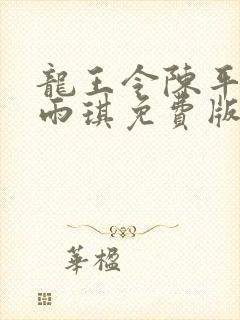 龍王令陳平
雨琪免費版
華楹